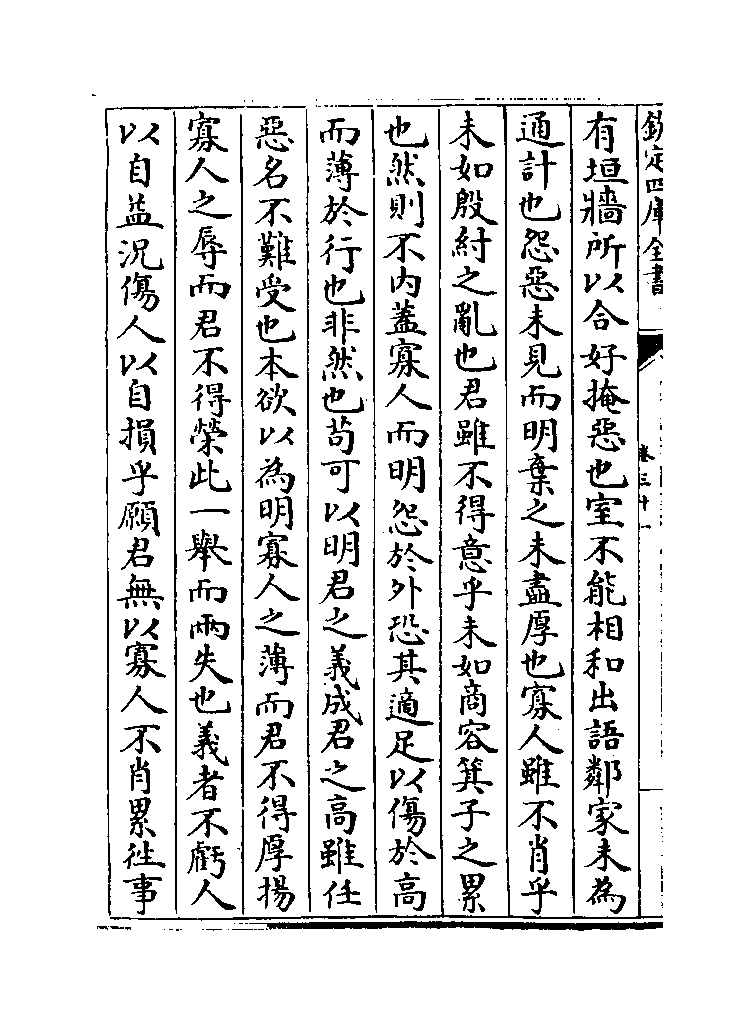 欽定四庫全書
卷三十一
有垣牆所以合好掩惡也室不能相和出語鄰家未為
通計也怨惡未見而明棄之未盡厚也寡人雖不肖乎
未如殷紂之亂也君雖不得意乎未如商容箕子之累
也然則不内蓋寡人而明怨於外恐其適足以傷於高
而薄於行也非然也苟可以明君之義成君之高雖任
惡名不難受也本欲以為明寡人之薄而君不得厚揚
寡人之辱而君不得榮此一舉而兩失也義者不虧人
以自益況傷人以自損乎願君無以寡人不肖累徃事